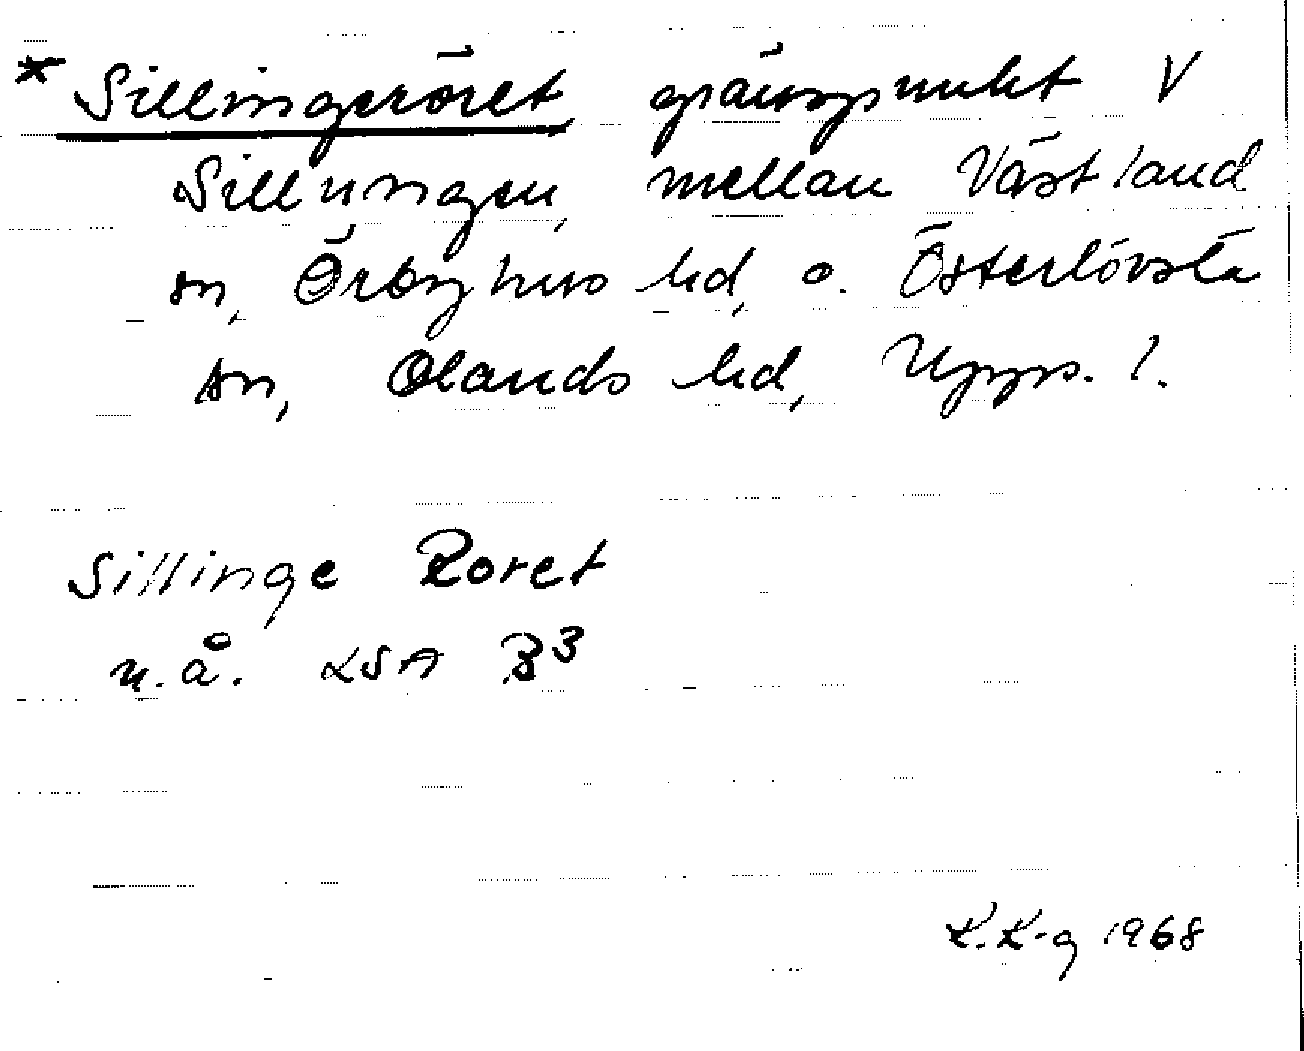 * Sillingeröret, gränspunkt V
Sillingen, mellan Västland
sn, Örbyhus hd, o. Österlövsta
sn, Olands hd, Upps. l.
Sillinge Roret
u.å. LSA B3
K.K-g 1968